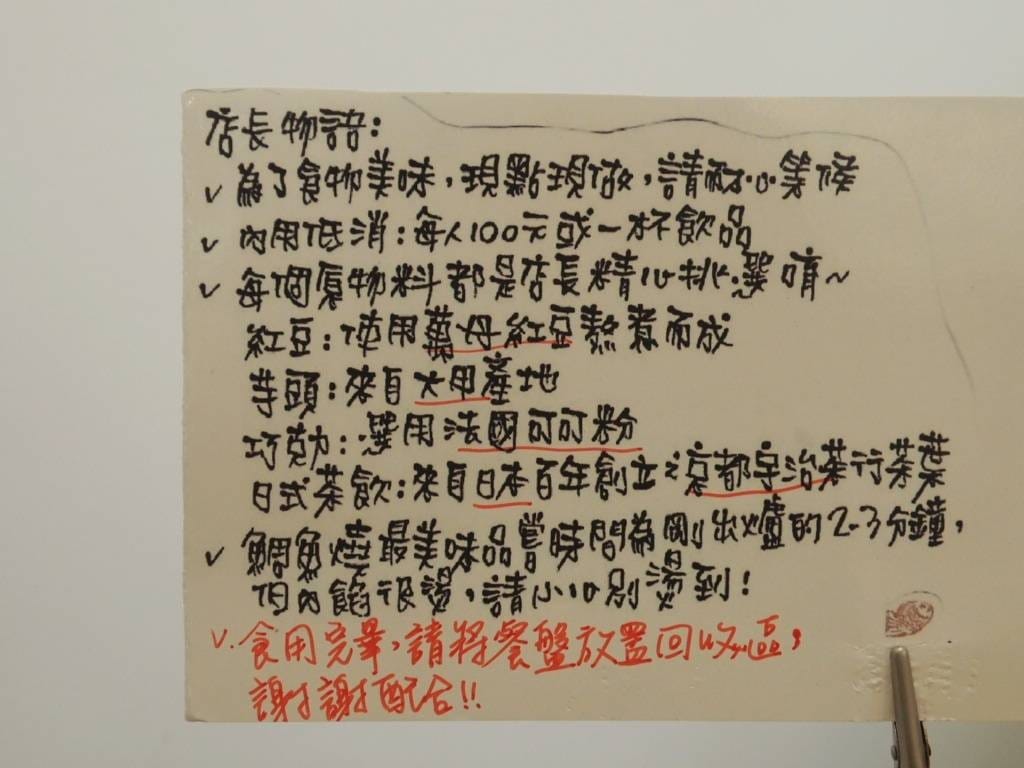 店長物語：
✓ 為了食物美味，現點現做，請耐心等候
✓ 內用低消：每人100元或一杯飲品
✓ 每個食物料都是店長精心挑選唷~
紅豆：使用萬丹紅豆熬煮而成
芋頭：來自大甲產地
巧克力：選用法國可可粉
日式茶飲：來自日本百年創立之京都宇治茶行茶葉
✓ 鯛魚燒最美味品嘗時間為剛出爐的2-3分鐘，
但內餡很燙，請小心別燙到！
✓.食用完畢，請將餐盤放置回收區，
謝謝配合!!